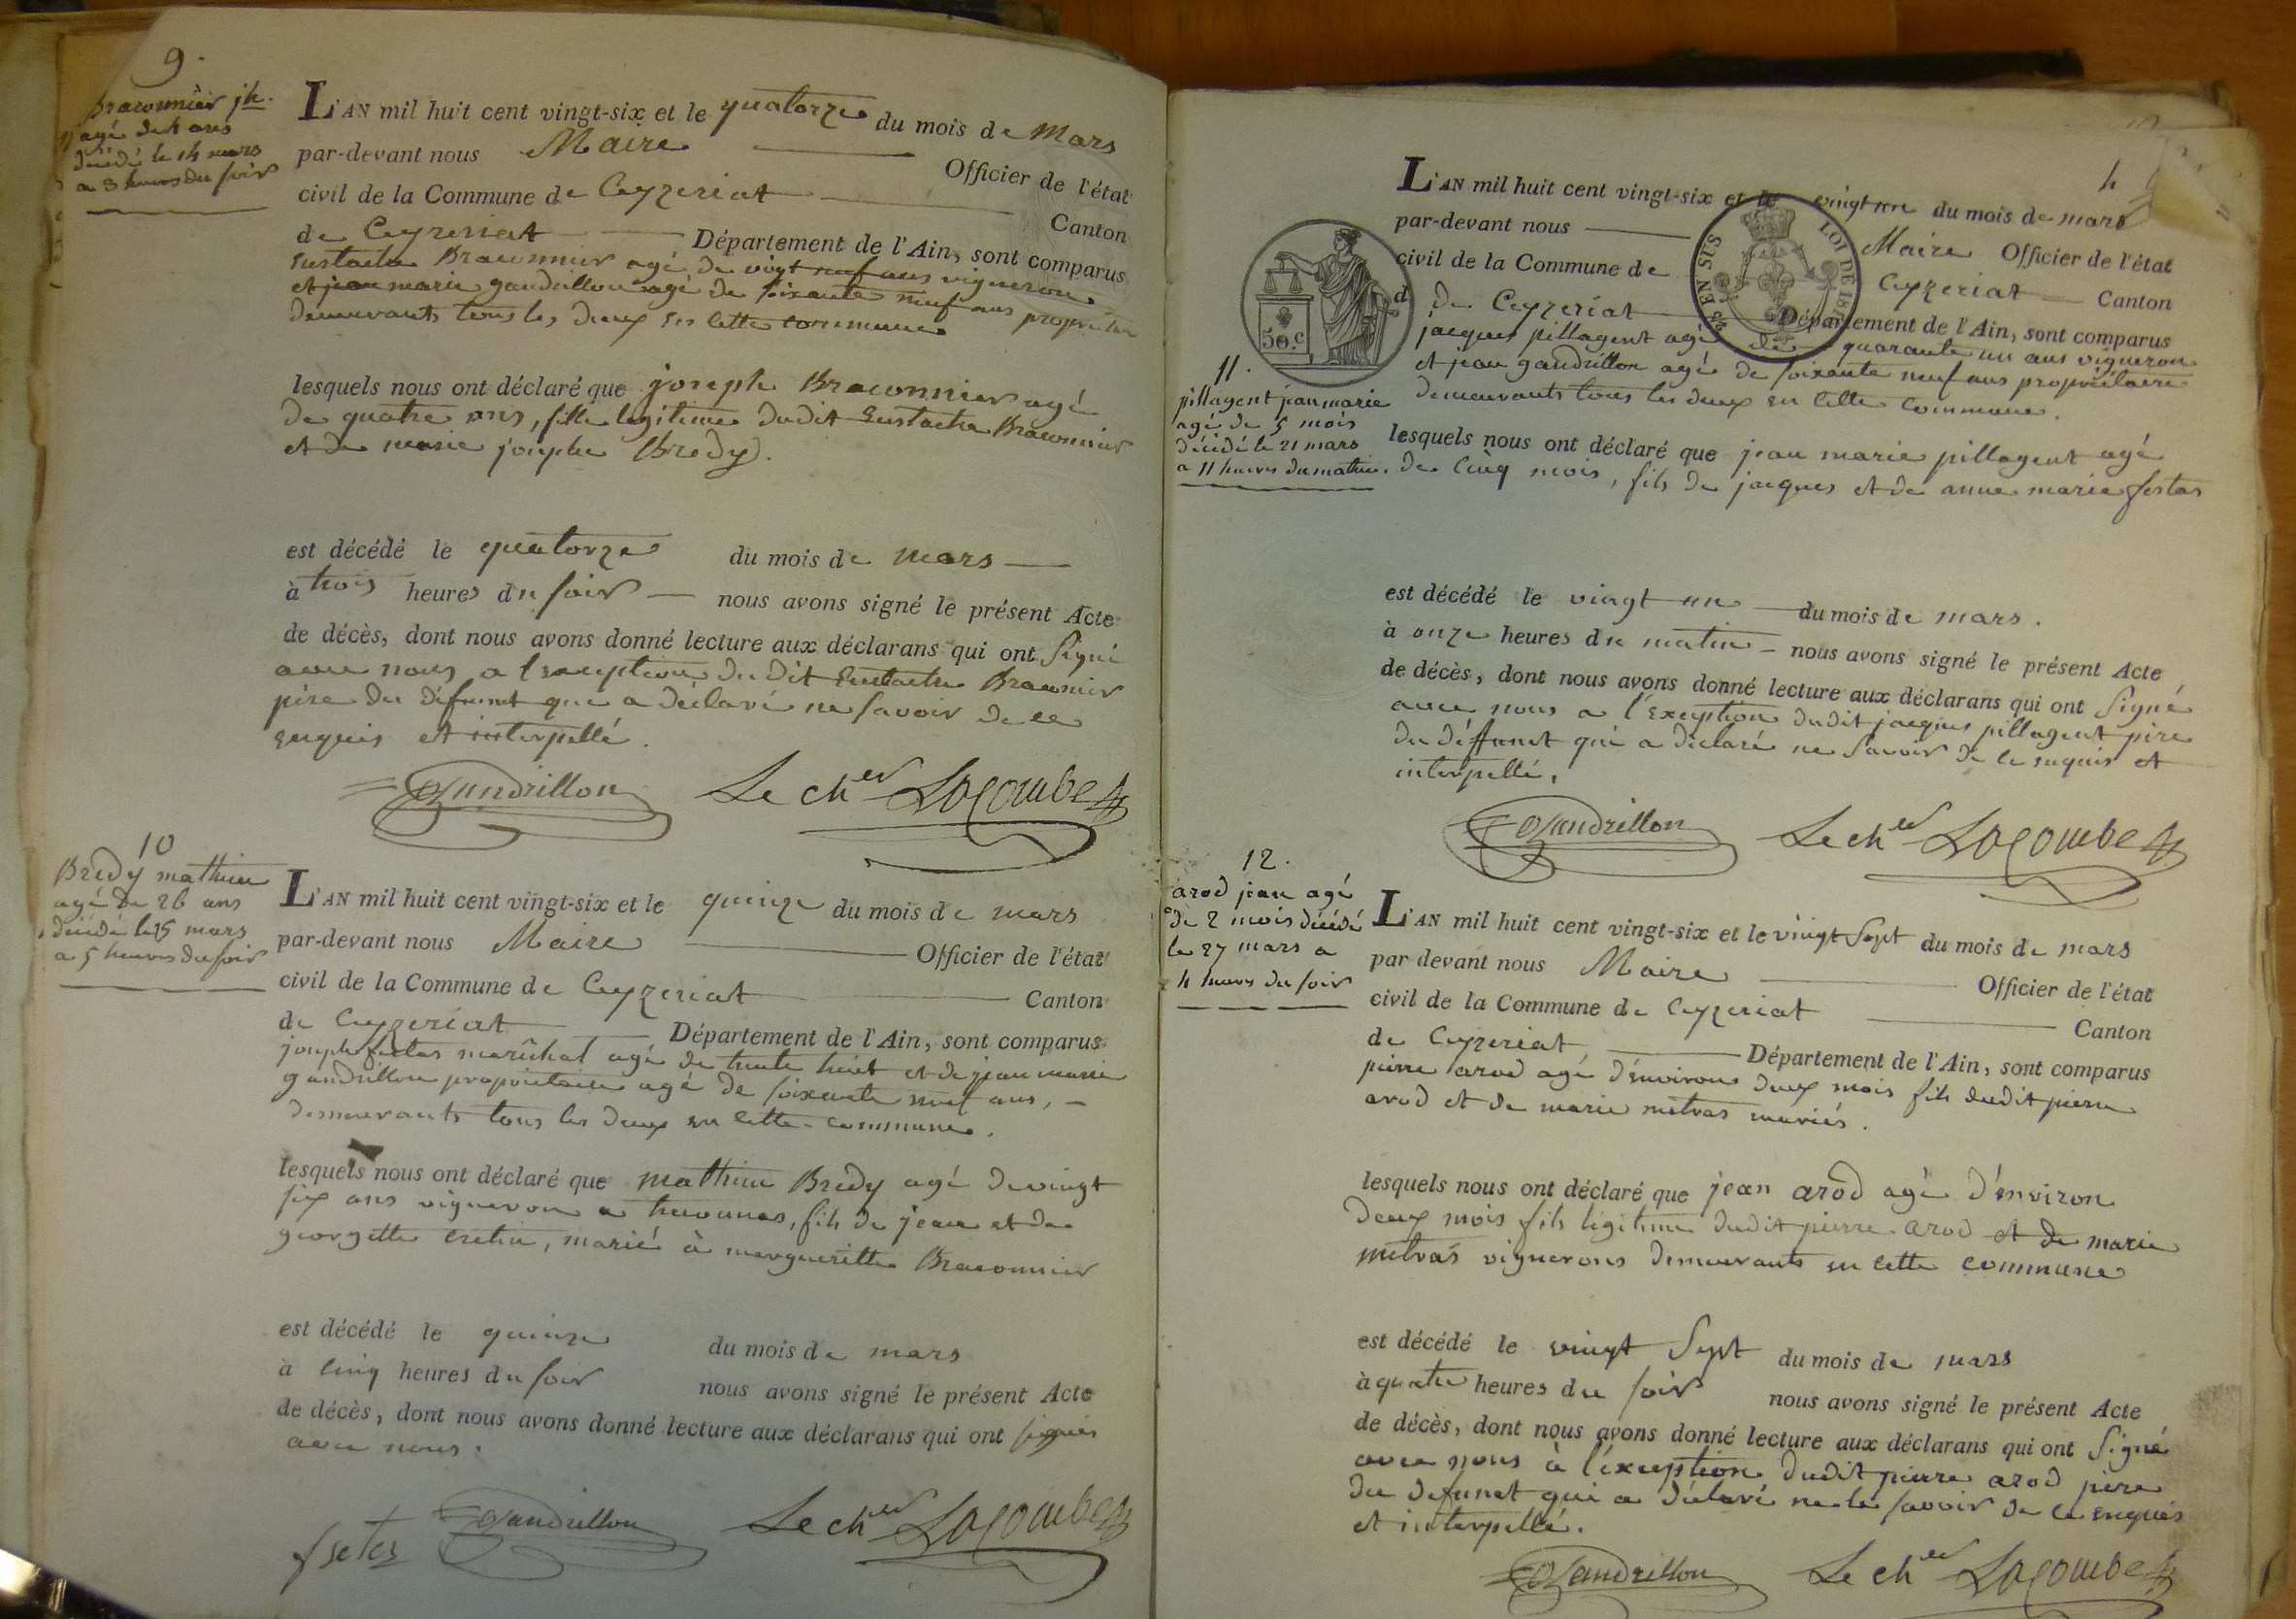 9.
Braconnier jh.
agé de 4 ans
décédé le 14 mars
a 3 heures du soir
L'AN mil huit cent vingt-six et le quatorze du mois de mars
par-devant nous Maire Officier de l'état
civil de la Commune de Ceyzeriat Canton
de Ceyzeriat Département de l'Ain, sont comparus
Eustache Braconnier agé de vingt neuf ans vigneron
et jean marie gandrillon agé de soixante neuf ans propriétaire
demeurants tous les deux en cette commune
lesquels nous ont déclaré que joseph Braconnier agé
de quatre ans, fils legitime dudit Eustache Braconnier
et de marie josephe Bredy.
est décédé le quatorze du mois de mars
à trois heures du soir nous avons signé le présent Acte
de décès, dont nous avons donné lecture aux déclarans qui ont signé
avec nous a l'exception du dit Eustache Braconnier
père du défunt qui a déclaré ne savoir de ce
enquis et interpellé.
Gandrillon Le cher Lacombe
10
Bredy mathieu
agé de 26 ans
décédé le 15 mars
a 5 heures du soir
L'AN mil huit cent vingt-six et le quinze du mois de mars
par-devant nous Maire Officier de l'état
civil de la Commune de Ceyzeriat Canton
de Ceyzeriat Département de l'Ain, sont comparus
joseph festas maréchal agé de trente huit et de jean marie
gandrillon propriétaire agé de soixante neuf ans,
demeurants tous les deux en cette commune.
lesquels nous ont déclaré que mathieu Bredy agé de vingt
six ans vigneron a fils de jean et de
georgette cretin, marié à margueritte Braconnier
est décédé le quinze du mois de mars
à cinq heures du soir nous avons signé le présent Acte
de décès, dont nous avons donné lecture aux déclarans qui ont signés
avec nous.
Gandrillon Le cher Lacombe
4
L'AN mil huit cent vingt-six et le vingt un du mois de mars
par-devant nous Maire Officier de l'état
civil de la Commune de Ceyzeriat Canton
de Ceyzeriat Département de l'Ain, sont comparus
50.c
LOI DE 18
jacques pillagent agé de quarante un ans vigneron
et jean gandrillon agé de soixante neuf ans propriétaire
demeurants tous les deux en cette commune.
11.
pillagent jean marie
agé de 5 mois
décédé le 21 mars
a 11 heures du matin.
lesquels nous ont déclaré que jean marie pillagent agé
de cinq mois, fils de jacques et de anne marie festas
est décédé le vingt un du mois de mars.
à onze heures du matin nous avons signé le présent Acte
de décès, dont nous avons donné lecture aux déclarans qui ont signé
avec nous a l'exception dudit jacques pillagent père
du déffunct qui a déclaré ne savoir de ce enquis et
interpellé.
Gandrillon Le cher Lacombe
12.
arod jean agé
de 2 mois décédé
le 27 mars a
4 heures du soir
L'AN mil huit cent vingt-six et le vingt sept du mois de mars
par devant nous Maire Officier de l'état
civil de la Commune de Ceyzeriat Canton
de Ceyzeriat Département de l'Ain, sont comparus
pierre arod agé d'environ deux mois fils dudit pierre
arod et de marie metras mariés.
lesquels nous ont déclaré que jean arod agé d'environ
deux mois fils légitime dudit pierre arod et de marie
metras vignerons demeurants en cette commune
est décédé le vingt sept du mois de mars
à quatre heures du soir nous avons signé le présent Acte
de décès, dont nous avons donné lecture aux déclarans qui ont signé
avec nous à l'exception dudit pierre arod père
du defunct qui a déclaré ne le savoir de ce enquis
et interpellé.
Gandrillon Le cher Lacombe